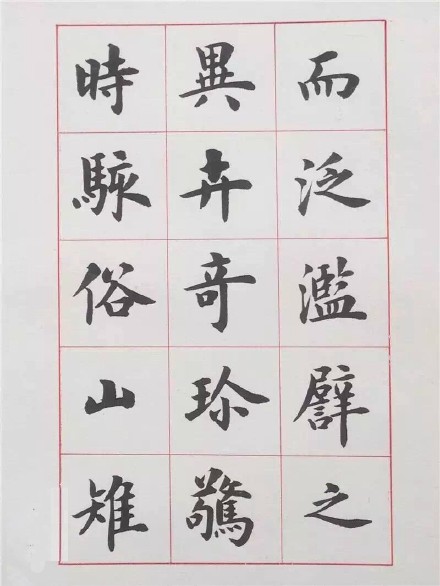 而泛濫譬之
異卉奇珎驚
時駭俗山雉